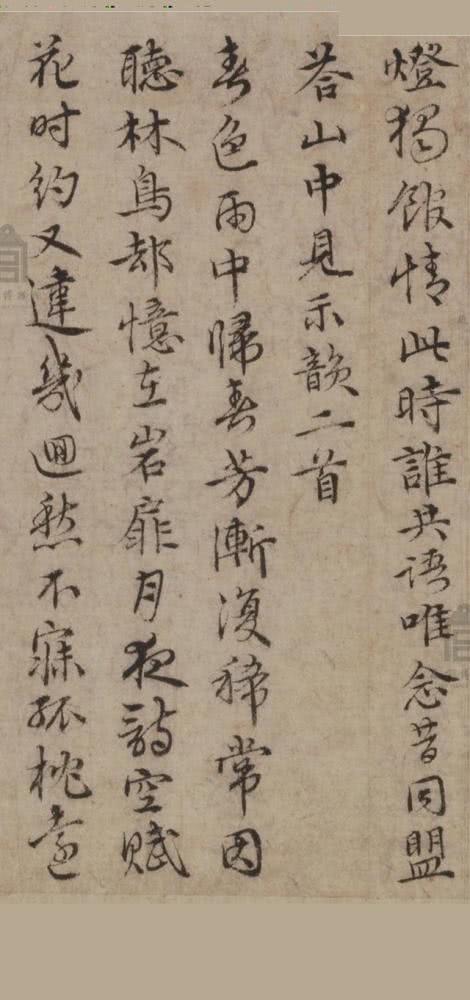 燈獨館情此時誰共語唯念昔同盟
荅山中見示韻二首
春色雨中歸春芳漸復稀常因
聽林鳥却憶在岩扉月夜詩空賦
花时約又違幾迴愁不寐孤枕遠